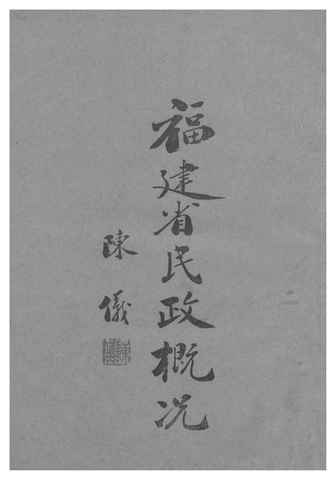 福建省民政概况
陳儀